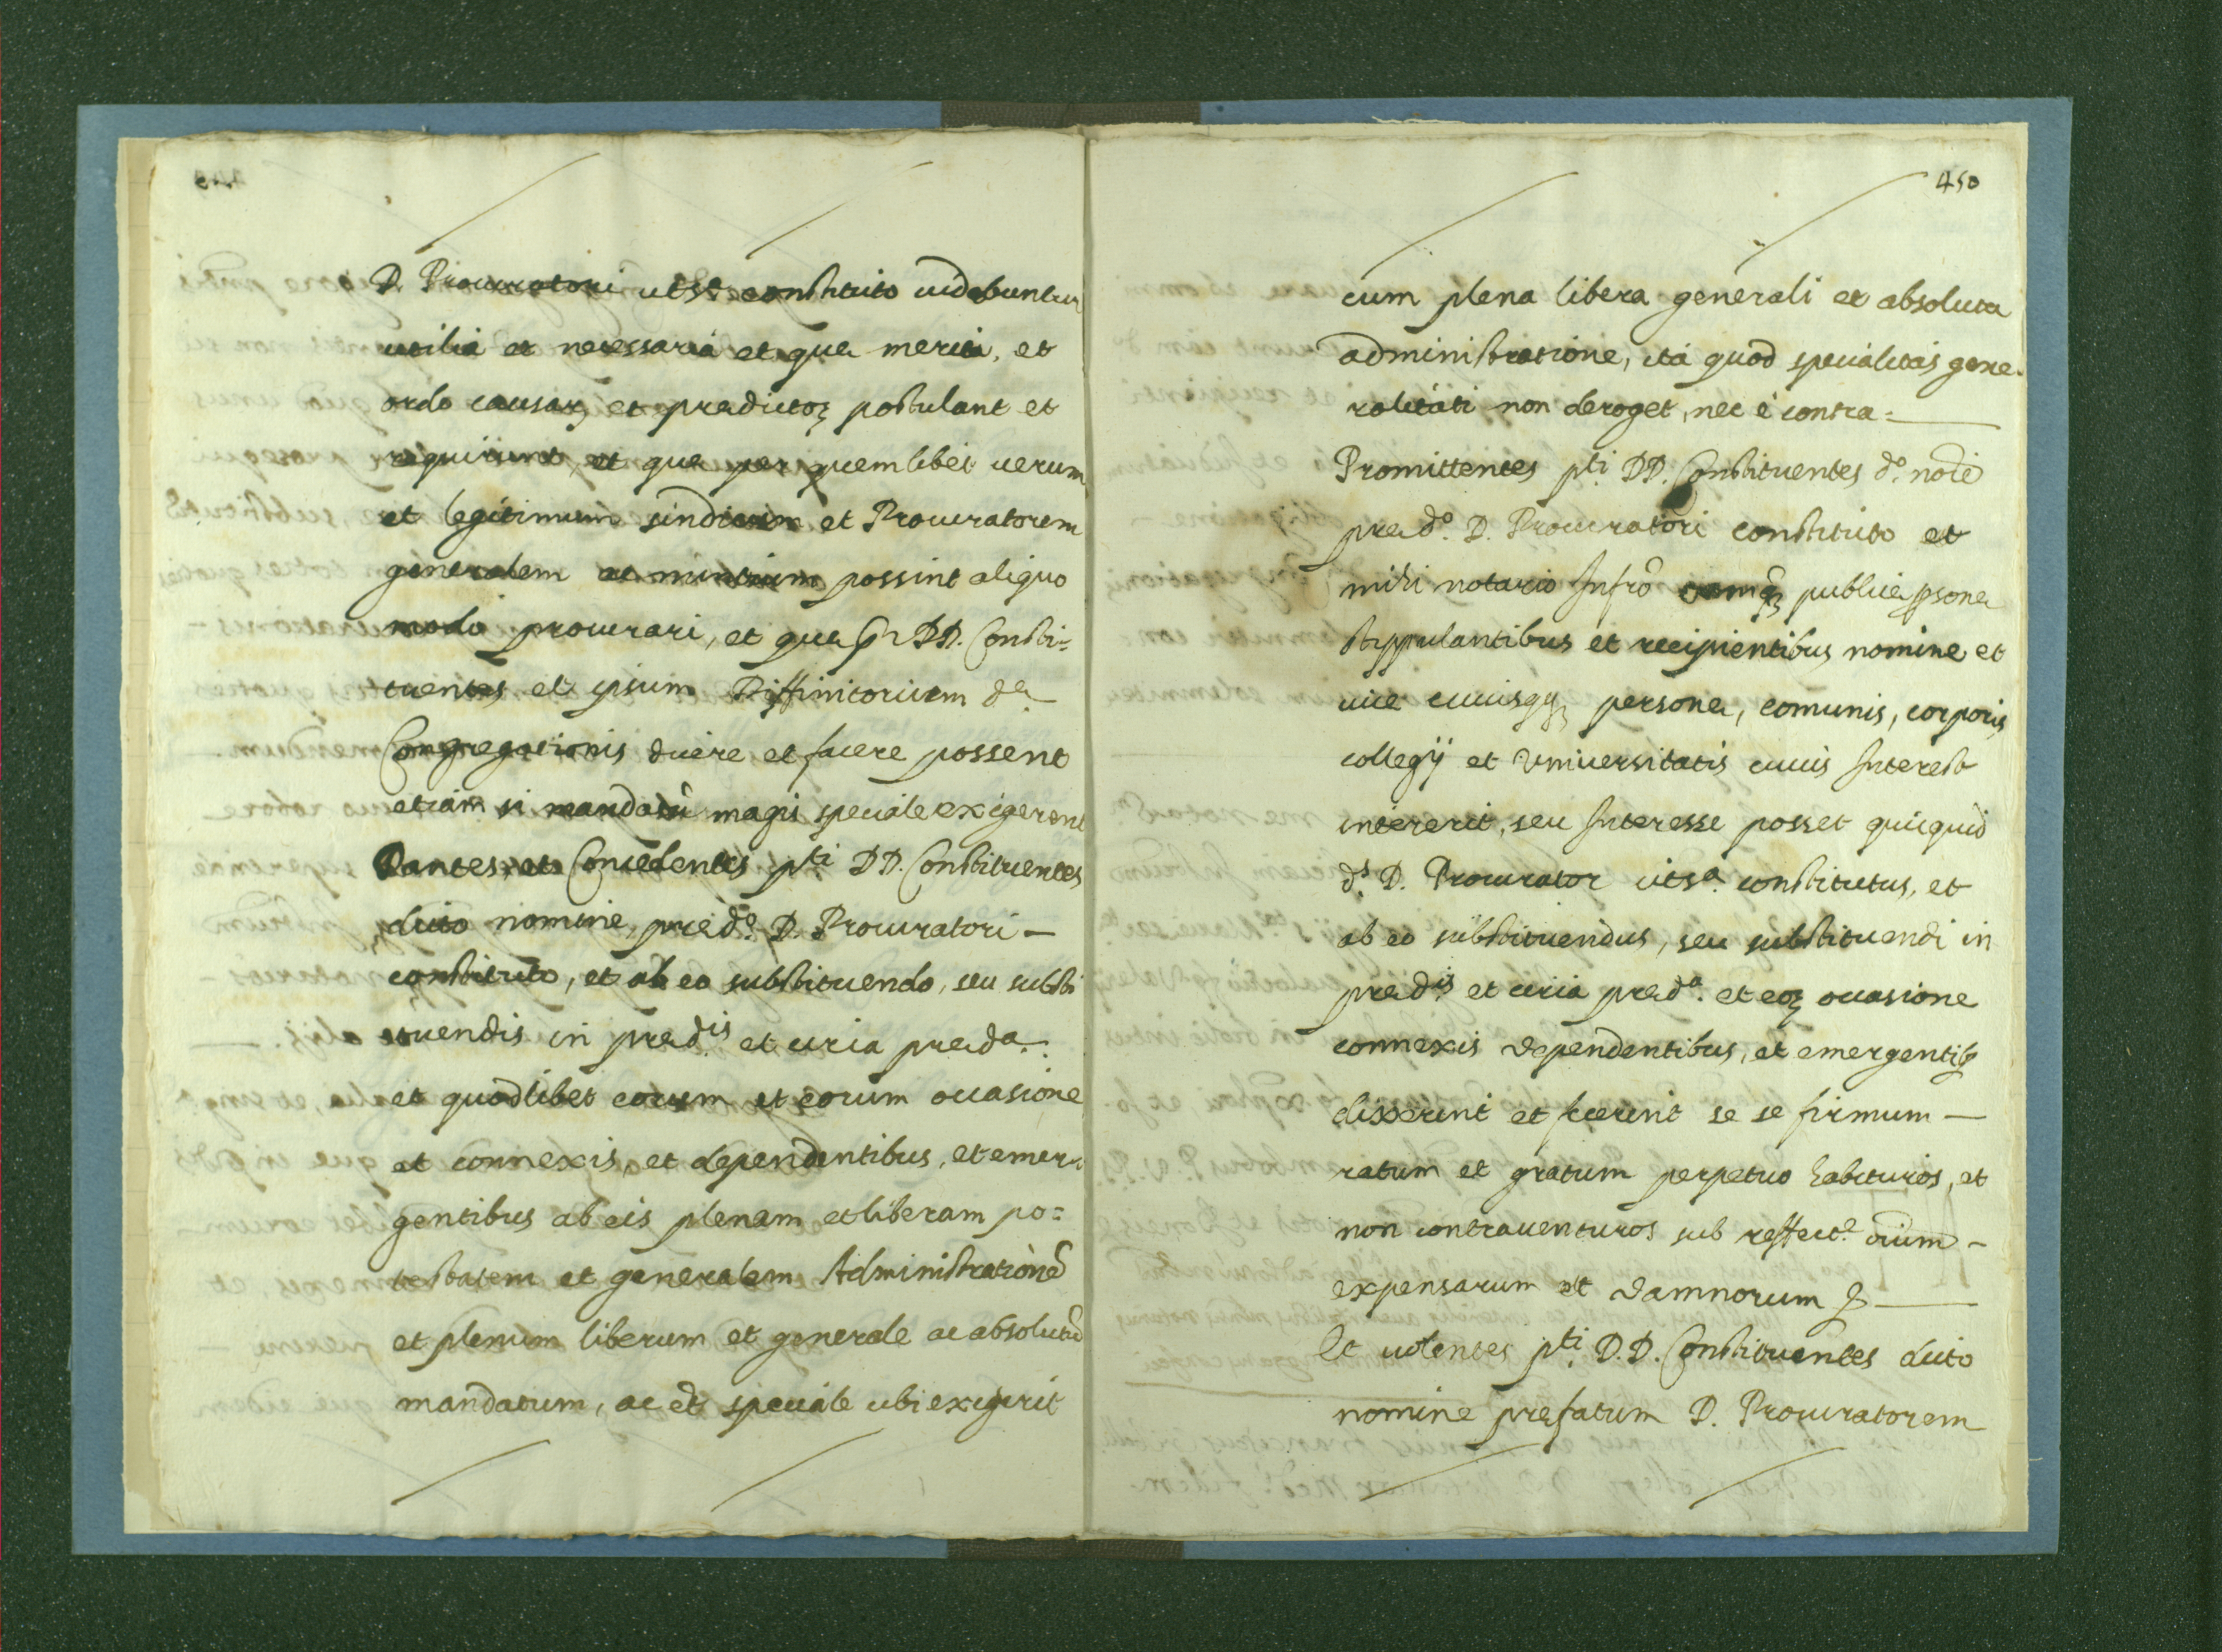 D. Procuratori utsª constituto uidebuntur
utilia et necessaria et que merita, et
ordo causarꝫ et predictoꝫ postulant et
requirunt, et que per quemlibet uerum
et legitimum sindicum et Procuratorem
generalem ac nuntium possint aliquo
modo procurari, et que DD. Consti=
tuentes, et ipsum Diffinitorium dª
Congregationis dicere et facere possent
etiam si mandatũ magis speciale exigerent
Dantes, et Concedentes pti DD. Constituentes
dicto nomine pred.º D. Procuratori —
constituto, et ab eo substituendo, seu substi
tuendis in pred.is et curia preda.
et quodlibet eorum et eorum occasione
et connexis, et dependentibus, et emer=
gentibus ab eis plenam et liberam po=
testatem et generalem Administrationẽ
et plenum liberum et generale ac absolutũ
mandatum, ac et speciale ubi exigerit
450
cum plena libera generali et absoluta
administratione, ita quod specialitas gene=
ralitati non deroget, nec è contra=
Promittentes pti DD. Constituentes dº noie
pred.º D. Procuratori constituto et
mihi notario Infrõ publice psone
stippulantibus et recipientibus nomine et
uice cuiusqꝫ persone, comunis, corporis
collegij et Vniuersitatis cuius Interest
intererit, seu Interesse posset quicquid
d.s D. Procurator utsª constitutus, et
ab eo substituendus, seu substituendi in
pred.is et curia pred.ª et eoꝫ occasione
connexis dependentibus, et emergentibꝫ
dixerint et fecerint se se firmum —
ratum et gratum perpetuo habituros, et
non contrauenturos sub reffect.e oium —
expensarum et damnorum &
Et uolentes pti D.D. Constituentes dicto
nomine prefatum D. Procuratorem